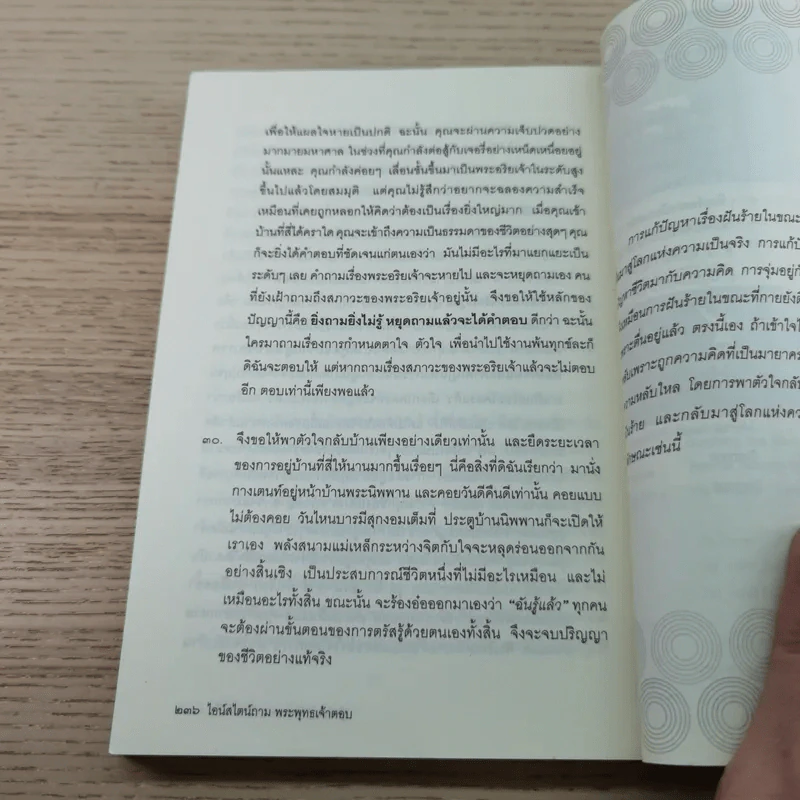 เพื่อให้แผลใจหายเป็นปกติ ฉะนั้น คุณจะผ่านความเจ็บปวดอย่าง
มากมายมหาศาล ในช่วงที่คุณกำลังต่อสู้กับเจอรี่อย่างเหน็ดเหนื่อยอยู่
นั้นแหละ คุณกำลังค่อยๆ เลื่อนชั้นขึ้นมาเป็นพระอริยเจ้าในระดับสูง
ขึ้นไปแล้วโดยสมมุติ แต่คุณไม่รู้สึกว่าอยากจะฉลองความสำเร็จ
เหมือนที่เคยถูกหลอกให้คิดว่าต้องเป็นเรื่องยิ่งใหญ่มาก เมื่อคุณเข้า
บ้านที่สี่ได้คราใด คุณจะเข้าถึงความเป็นธรรมดาของชีวิตอย่างสุดๆ คุณ
ก็จะยิ่งได้คำตอบที่ชัดเจนแก่ตนเองว่า มันไม่มีอะไรที่มาแยกแยะเป็น
ระดับๆ เลย คำถามเรื่องพระอริยเจ้าจะหายไป และจะหยุดถามเอง คน
ที่ยังเฝ้าถามถึงสภาวะของพระอริยเจ้าอยู่นั้น จึงขอให้ใช้หลักของ
ปัญญานี้คือ ยิ่งถามยิ่งไม่รู้ หยุดถามแล้วจะได้คำตอบ ดีกว่า ฉะนั้น
ใครมาถามเรื่องการกำหนดตาใจ ตัวใจ เพื่อนำไปใช้งานพ้นทุกข์ละก็
ดิฉันจะตอบให้ แต่หากถามเรื่องสภาวะของพระอริยเจ้าแล้วจะไม่ตอบ
อีก ตอบเท่านี้เพียงพอแล้ว
๓๐. จึงขอให้พาตัวใจกลับบ้านเพียงอย่างเดียวเท่านั้น และยืดระยะเวลา
ของการอยู่บ้านที่สี่ให้นานมากขึ้นเรื่อยๆ นี่คือสิ่งที่ดิฉันเรียกว่า มานั่ง
กางเตนท์อยู่หน้าบ้านพระนิพพาน และคอยวันดีคืนดีเท่านั้น คอยแบบ
ไม่ต้องคอย วันไหนบารมีสุกงอมเต็มที่ ประตูบ้านนิพพานก็จะเปิดให้
เราเอง พลังสนามแม่เหล็กระหว่างจิตกับใจจะหลุดร่อนออกจากกัน
อย่างสิ้นเชิง เป็นประสบการณ์ชีวิตหนึ่งที่ไม่มีอะไรเหมือน และไม่
เหมือนอะไรทั้งสิ้น ขณะนั้น จะร้องอ๋อออกมาเองว่า “ฉันรู้แล้ว” ทุกคน
จะต้องผ่านขั้นตอนของการตรัสรู้ด้วยตนเองทั้งสิ้น จึงจะจบปริญญา
ของชีวิตอย่างแท้จริง
๒๓๖ ไอน์สไตน์ถาม พระพุทธเจ้าตอบ
การแก้ปัญหาเรื่องฝันร้ายในขณะ
มาสู่โลกแห่งความเป็นจริง การแก้ปั
ชีวิตมากับความคิด การจุ่มอยู่กั
เหมือนการฝันร้ายในขณะที่กายยังตื
ตื่นอยู่แล้ว ตรงนี้เอง ถ้าเข้าใจไ
เพราะถูกความคิดที่เป็นมายาคร
ความหลับใหล โดยการพาตัวใจกลับ
ร้าย และกลับมาสู่โลกแห่งคว
ลักษณะเช่นนี้